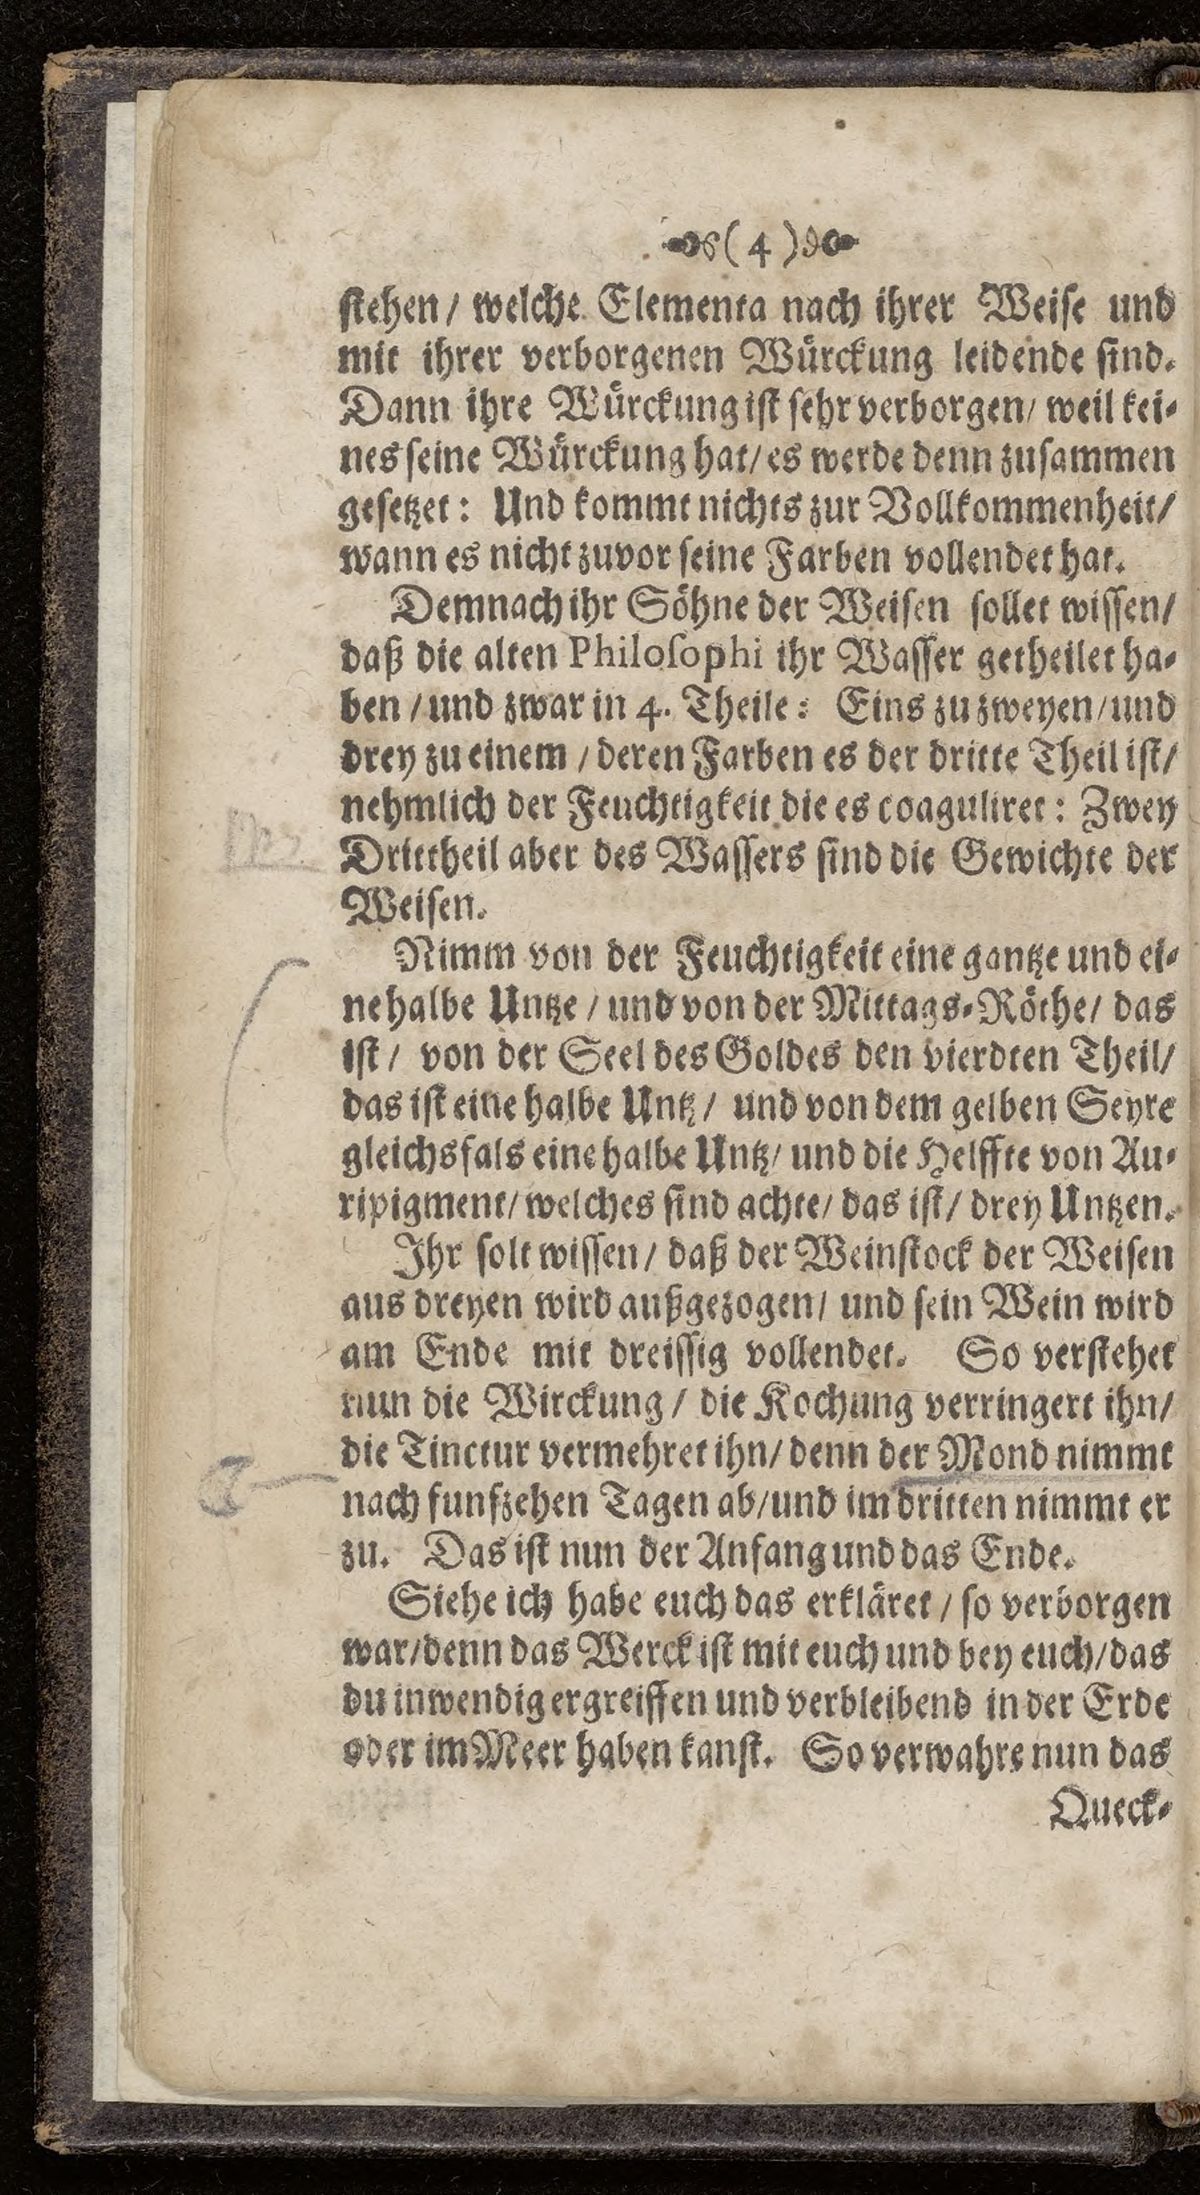 (4)
stehen / welche Elementa nach ihrer Weise und
mit ihrer verborgenen Würckung leidende sind.
Dann ihre Würckung ist sehr verborgen / weil kei-
nes seine Würckung hat / es werde denn zusammen
gesetzet: Und kommt nichts zur Vollkommenheit /
wann es nicht zuvor seine Farben vollendet hat.
Demnach ihr Söhne der Weisen sollet wissen /
daß die alten Philosophi ihr Wasser getheilet ha-
ben / und zwar in 4. Theile: Eins zu zweyen / und
drey zu einem / deren Farben es der dritte Theil ist /
nehmlich der Feuchtigkeit die es coaguliret: Zwey
Dritttheil aber des Wassers sind die Gewichte der
Weisen.
Nimm von der Feuchtigkeit eine gantze und ei-
ne halbe Untze / und von der Mittags-Röthe / das
ist / von der Seel des Goldes den vierdten Theil /
das ist eine halbe Untz / und von dem gelben Seyre
gleichsfals eine halbe Untz / und die Helffte von Au-
ripigment / welches sind achte / das ist / drey Untzen.
Ihr solt wissen / daß der Weinstock der Weisen
aus dreyen wird außgezogen / und sein Wein wird
am Ende mit dreissig vollendet. So verstehet
nun die Wirckung / die Kochung verringert ihn /
die Tinctur vermehret ihn / denn der Mond nimmt
nach funfzehen Tagen ab / und im dritten nimmt er
zu. Das ist nun der Anfang und das Ende.
Siehe ich habe euch das erkläret / so verborgen
war / denn das Werck ist mit euch und bey euch / das
du inwendig ergreiffen und verbleibend in der Erde
oder im Meer haben kanst. So verwahre nun das
Queck-